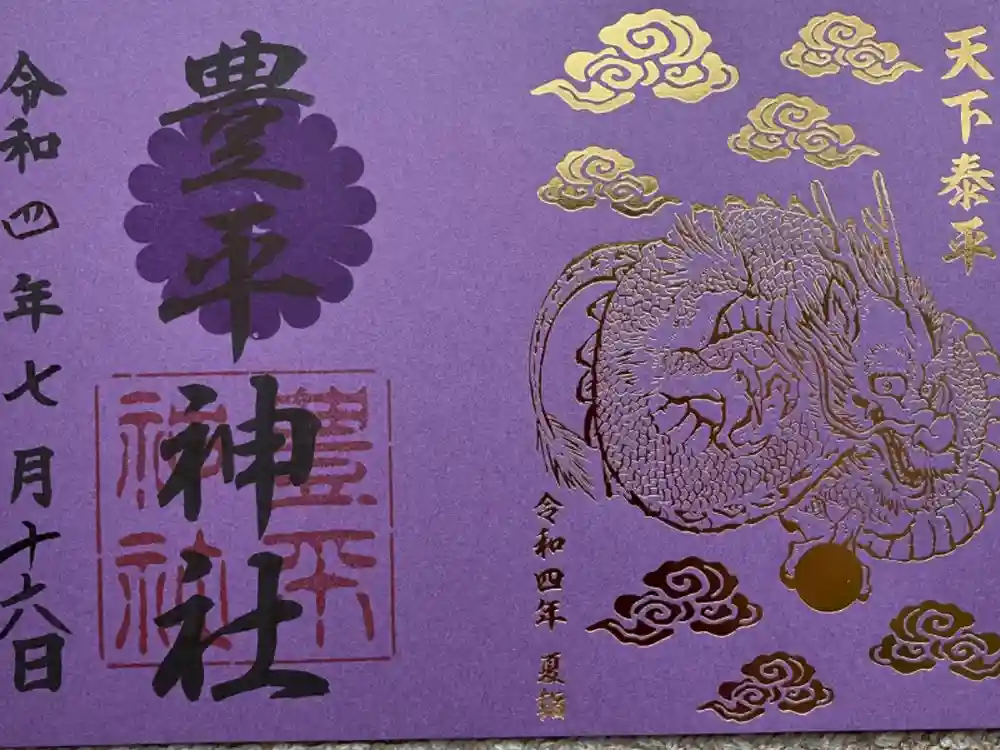 天下泰平
令和四年 夏詣
豊平神社
豊平神社
令和四年七月十六日